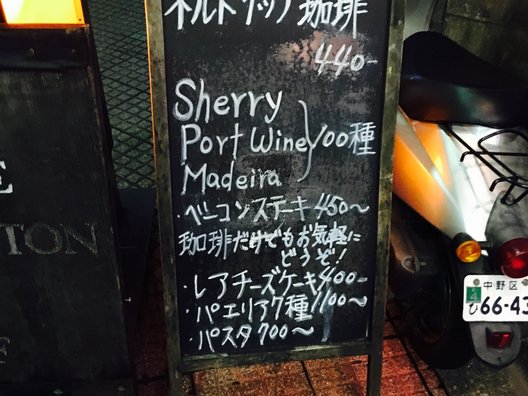 ネルドリップ珈琲
440-
Sherry
Port Wine 100種
Madeira
・ベーコンステーキ 450〜
珈琲だけでもお気軽に
どうぞ!
・レアチーズケーキ 400-
・パエリア7種 1100〜
・パスタ 700〜
E
TON
E
中野区
ひ 66-43